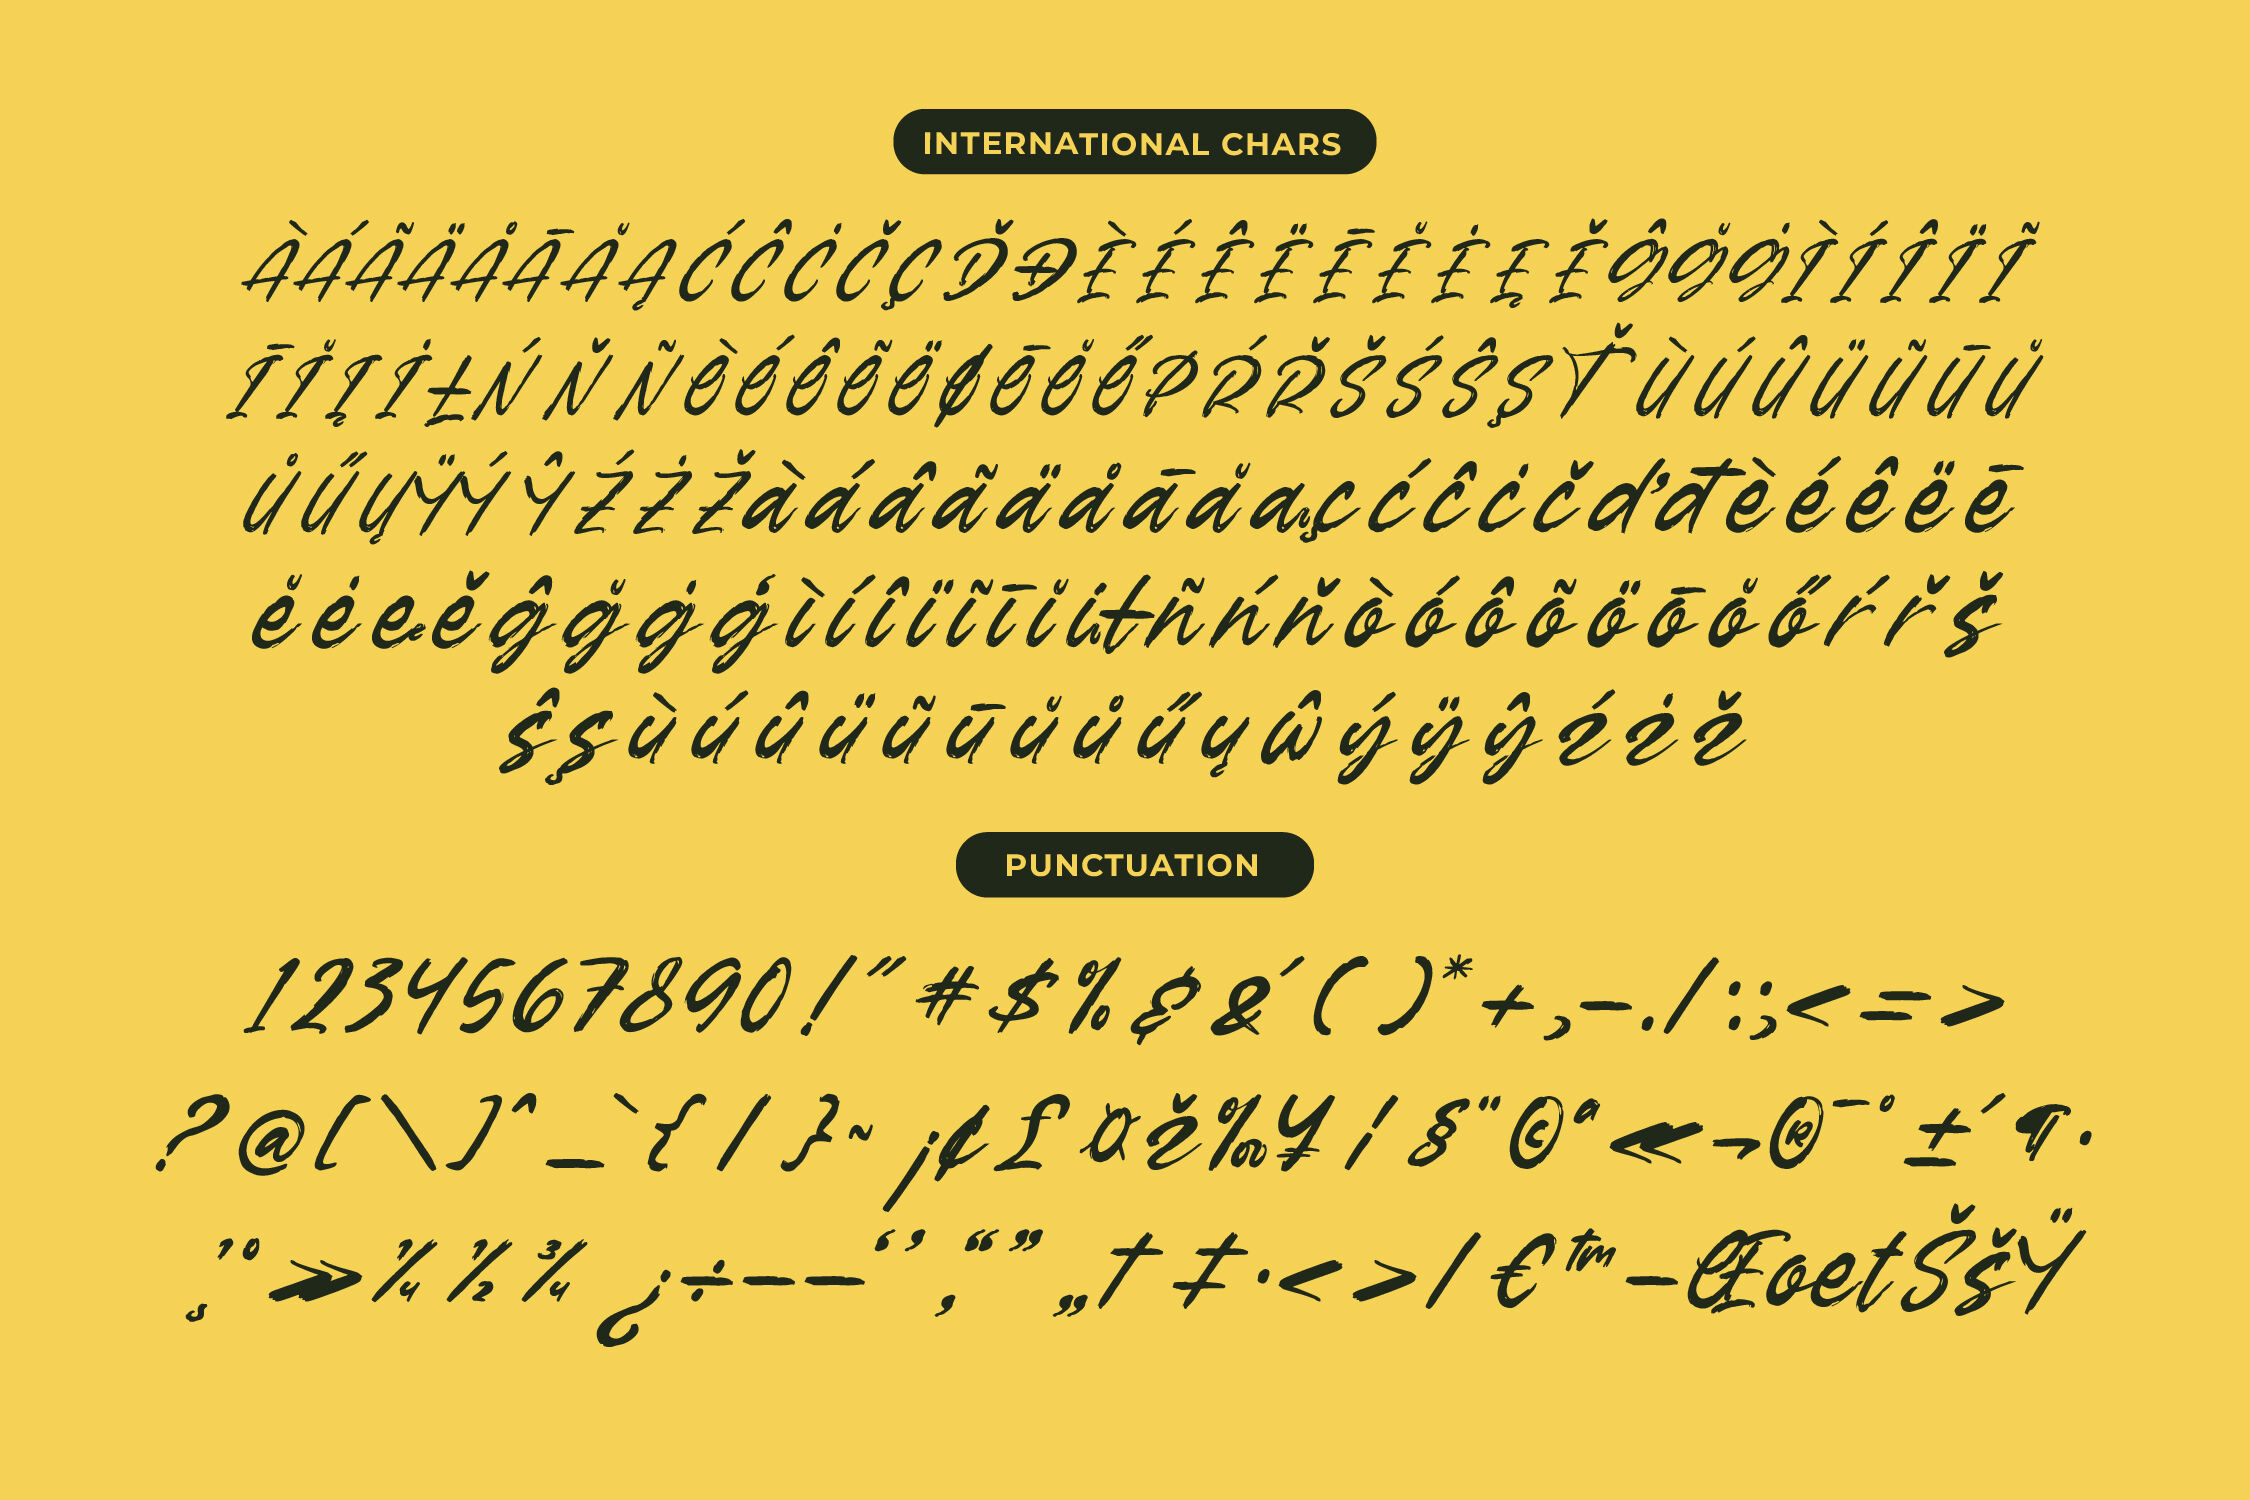 INTERNATIONAL CHARS
ÀÁÃÄÅĀĂĄĆĈĊČÇĎĐÈÉÊËĒĔĖĘĚĜĞĠÌÍÎÏĨ
ĪĬĮİŁŃŇÑÒÓÔÕÖØŌŎŐPŔŘŠŚŜŞŤÙÚÛÜŨŪŬ
ŮŰŲŸÝŶŹŻŽàáâãäåāăąçćĉċčďđèéêëē
ĕėęěĝğġģìíîïĩīĭįłñńňòóôõöōŏőŕřš
ŝşùúûüũūŭůűųŵýÿŷźżž
PUNCTUATION
1234567890!"#$%¢&'()*+,-./:;<=>
?@[\]^_`{|}~¡¢£¤ž‰¥¦§¨©ª«¬®¯°±´¶·
¸¹º»¼½¾¿÷–—‘’‚“”„†‡·<>/€™−ŒoetŠšŸ